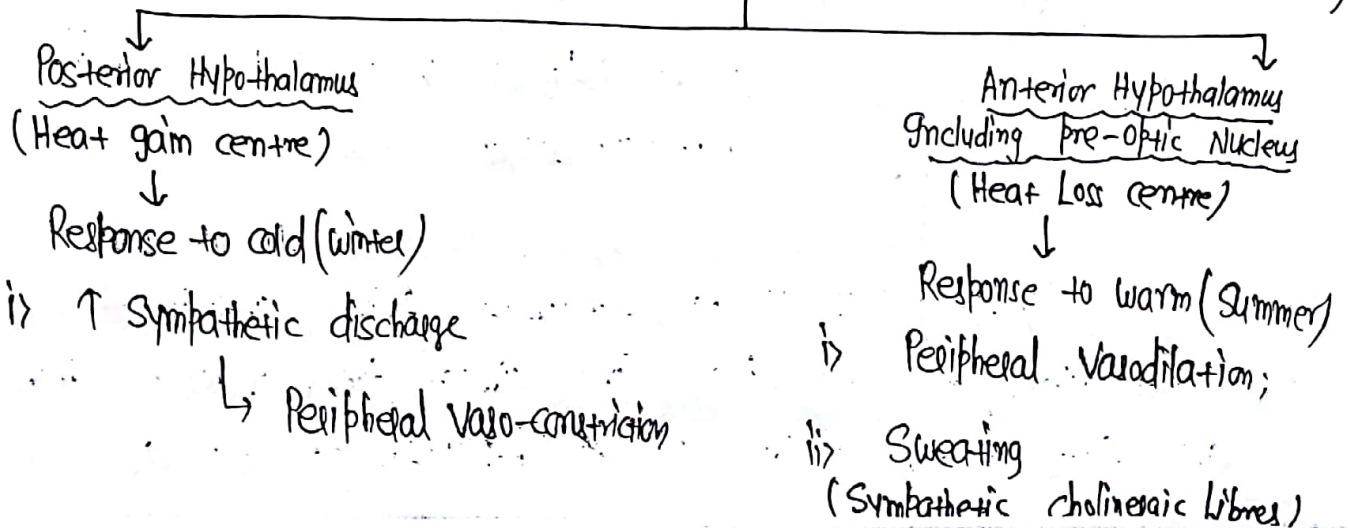 Posterior Hypothalamus
(Heat gain centre)
Response to cold (winter)
i> ↑ Sympathetic discharge
↳ Peripheral vaso-constriction
Anterior Hypothalamus
Including pre-optic Nucleus
(Heat Loss centre)
Response to warm (Summer)
i> Peripheral Vasodilation;
ii> Sweating
(Sympathetic cholinergic fibres)